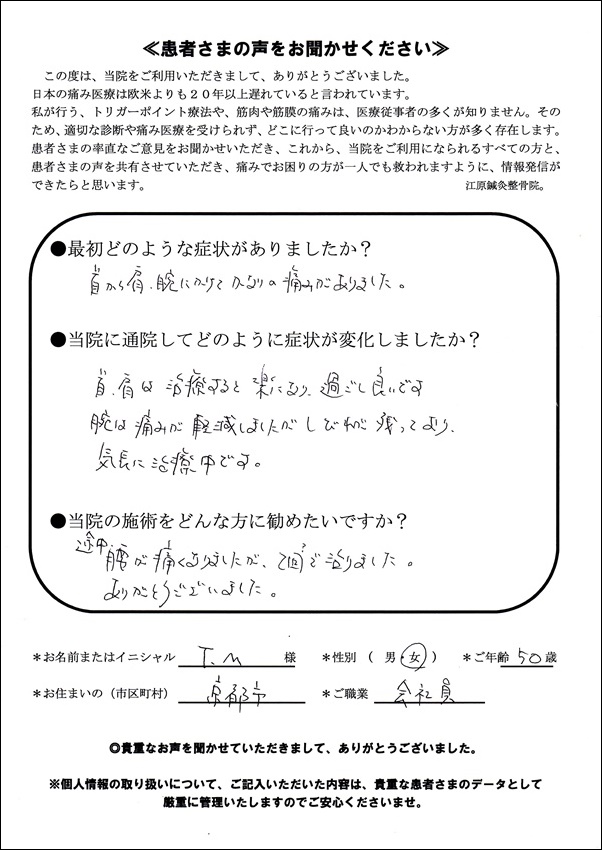 ≪患者さまの声をお聞かせください≫
この度は、当院をご利用いただきまして、ありがとうございました。
日本の痛み医療は欧米よりも２０年以上遅れていると言われています。
私が行う、トリガーポイント療法や、筋肉や筋膜の痛みは、医療従事者の多くが知りません。その
ため、適切な診断や痛み医療を受けられず、どこに行って良いのかわからない方が多く存在します。
患者さまの率直なご意見をお聞かせいただき、これから、当院をご利用になられるすべての方と、
患者さまの声を共有させていただき、痛みでお困りの方が一人でも救われますように、情報発信が
できたらと思います。 江原鍼灸整骨院。
●最初どのような症状がありましたか？
首から肩、腕にかけてかなりの痛みがありました。
●当院に通院してどのように症状が変化しましたか？
首、肩は治療すると楽になり、過ごし良いです
腕は痛みが軽減しましたがしびれが残っており、
気長に治療中です。
●当院の施術をどんな方に勧めたいですか？
途中、腰が痛くなりましたが、2回?で治りました。
ありがとうございました。
＊お名前またはイニシャル T.M 様 ＊性別（ 男・女 ） ＊ご年齢 50歳
＊お住まいの（市区町村） 京都市 ＊ご職業 会社員
◎貴重なお声を聞かせていただきまして、ありがとうございました。
※個人情報の取り扱いについて、ご記入いただいた内容は、貴重な患者さまのデータとして
厳重に管理いたしますのでご安心くださいませ。